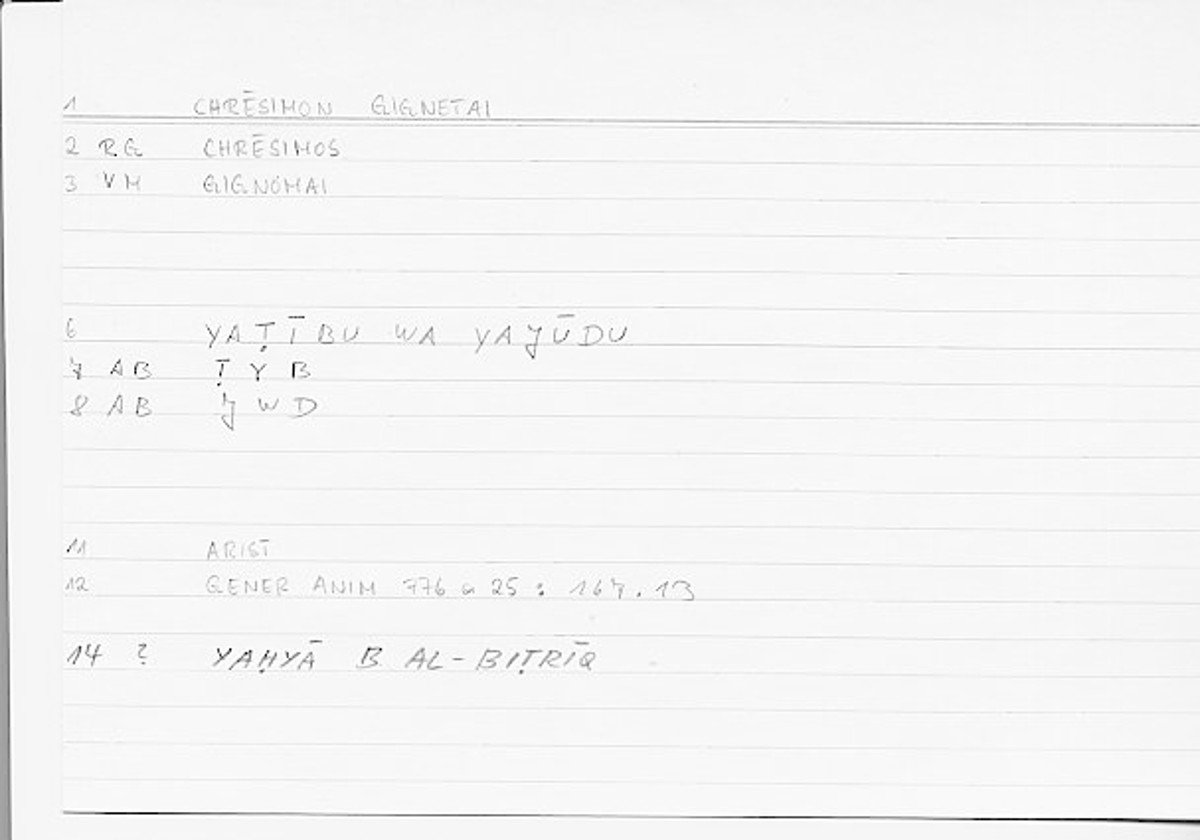 1 CHRĒSIMON GIGNETAI
2 RG CHRĒSIMOS
3 VM GIGNOMAI
6 YAṬĪBU WA YAJŪDU
7 AB ṬYB
8 AB JWD
11 ARIST
12 GENER ANIM 776 a 25 : 167.13
14 ? YAḤYĀ B AL-BIṬRĪQ